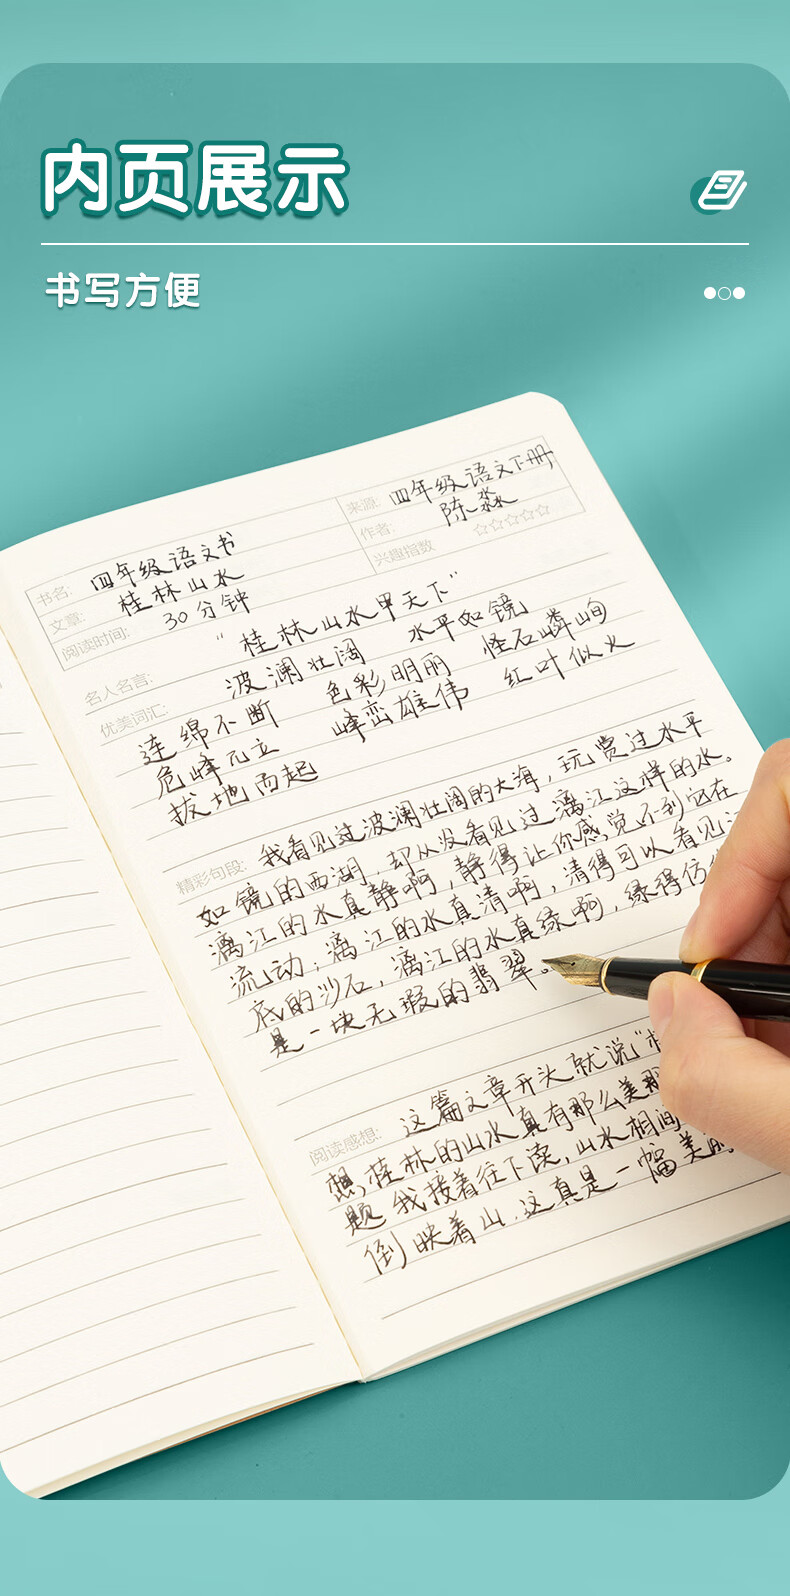 内页展示
书写方便
书名: 四年级语文书
来源: 四年级语文下册
文章: 桂林山水
作者: 陈淼
阅读时间: 30分钟
兴趣指数 ☆☆☆☆☆
名人名言: “桂林山水甲天下”
优美词汇: 波澜壮阔 水平如镜
连绵不断 色彩明丽 怪石嶙峋
危峰兀立 峰峦雄伟 红叶似火
拔地而起
精彩句段: 我看见过波澜壮阔的大海，玩赏过水平
如镜的西湖，却从没看见过漓江这样的水。
漓江的水真静啊，静得让你感觉不到它在
流动；漓江的水真清啊，清得可以看见江
底的沙石，漓江的水真绿啊，绿得仿
是一块无瑕的翡翠。
阅读感想: 这篇文章开头就说“
想，桂林的山水真有那么美
题我接着往下读，山水相间
倒映着山，这真是一幅美